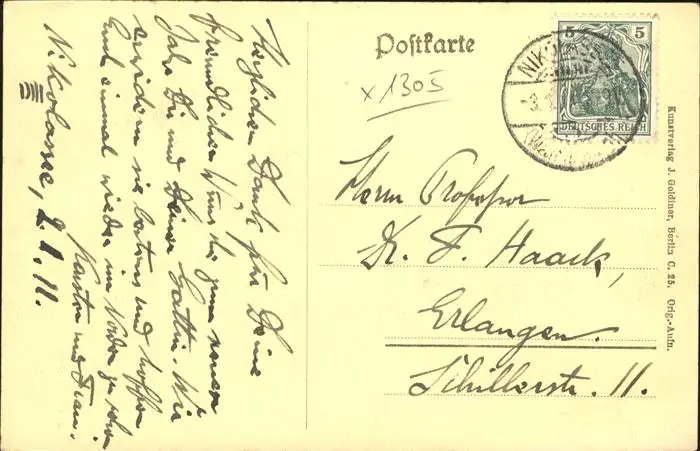 Herzlichen Dank für Deine
freundlichen Wünsche zum neuen
Jahr Dir und Deiner Gattin. Wir
erwidern sie bestens und hoffen
Euch einmal wieder im Norden zu sehen
Karsten und Frau.
Nikolassee, 2.1.11.
Postkarte
x 1305
5 5
DEUTSCHES REICH
NIKOLASSEE
-3.1.
Herrn Professor
Dr. F. Haack,
Erlangen.
Schillerstr. 11.
Kunstverlag J. Goldiner, Berlin C. 25. Orig.-Aufn.